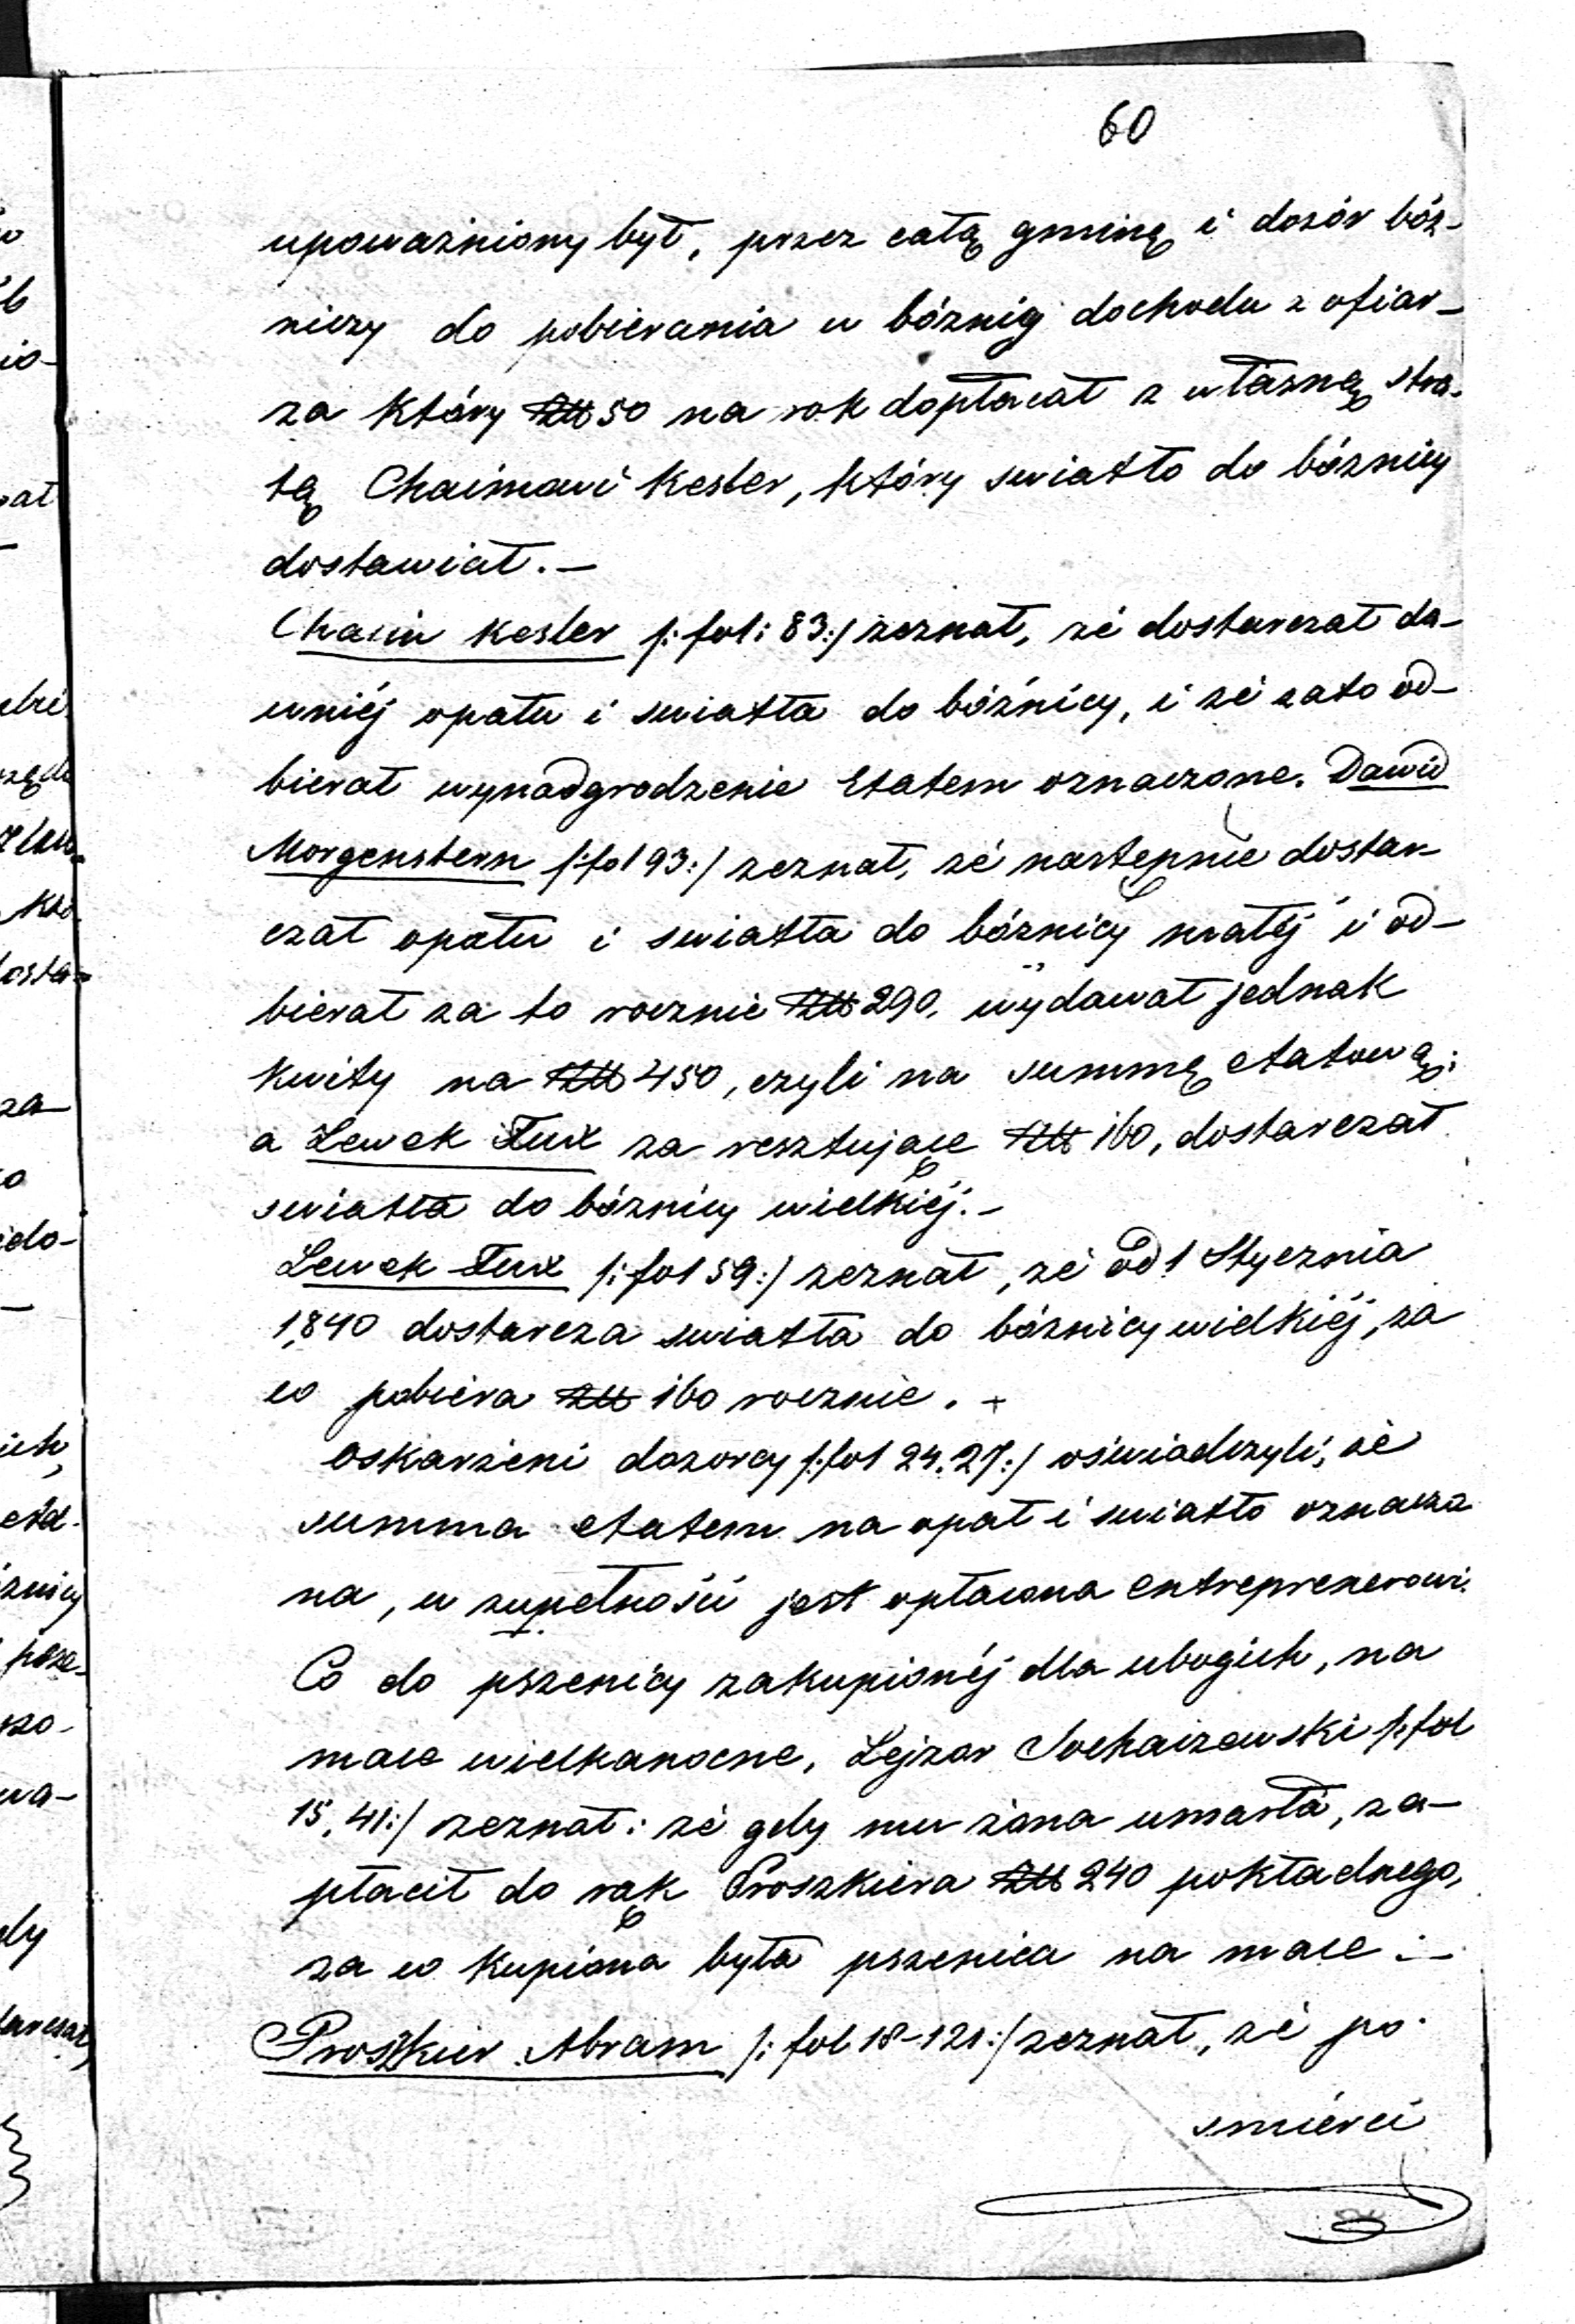 60
upoważniony był, przez całą gminę i dozór bóż-
niczy do pobierania w bóżnicy dochodu z ofiar-
za który Złł 50 na rok dopłacał z własną stra-
tą Chaimowi Kesler, który swiatło do bóżnicy
dostawiał.-
Chaim Kesler /:fol: 83:/ zeznał, że dostarczał da-
wniéj opału i swiatła do bóżnicy, i że zato od-
bierał wynadgrodzenie Etatem oznaczone. Dawid
Morgenstern /:fol 93:/ zeznał, że następnie dostar-
czał opału i swiatła do bóżnicy małéj i od-
bierał za to rocznie Złł 290. wydawał jednak
kwity na Złł 450, czyli na summę etatową;
a Lewek Fux za resztujące Złł 160, dostarczał
swiatła do bóżnicy wielkiéj.-
Lewek Fux /:fol 59:/ zeznał, że od 1 Stycznia
1840 dostarcza swiatła do bóżnicy wielkiéj, za
co pobiera Złł 160 rocznie. +
Oskarżeni dozorcy /:fol 24.27:/ oświadczyli, że
summa etatem na opał i swiatło oznaczo
na, w zupełności jest opłacona entreprenerowi.
Co do pszenicy zakupionéj dla ubogich, na
mace wielkanocne, Lejzor Sochaczewski /:fol
15, 41:/ zeznał: że gdy mu żona umarła, za-
płacił do rąk Proszkiera Złł 240 pokładnego,
za co kupiona była pszenica na mace :-
Proszkier Abram /: fol 18-121:/ zeznał, że po
smierci